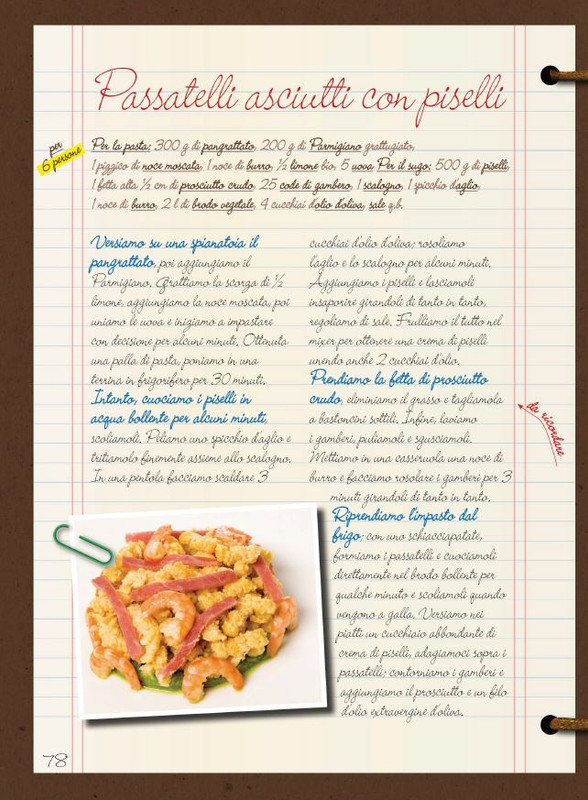 Passatelli asciutti con piselli
per
6 persone
Per la pasta: 300 g di pangrattato, 200 g di Parmigiano grattugiato,
1 pizzico di noce moscata, 1 noce di burro, ½ limone bio, 5 uova Per il sugo: 500 g di piselli,
1 fetta alta ½ cm di prosciutto crudo, 25 code di gambero, 1 scalogno, 1 spicchio d'aglio,
1 noce di burro, 2 l di brodo vegetale, 4 cucchiai d'olio d'oliva, sale q.b.
Versiamo su una spianatoia il
pangrattato, poi aggiungiamo il
Parmigiano. Grattiamo la scorza di ½
limone, aggiungiamo la noce moscata, poi
uniamo le uova e iniziamo a impastare
con decisione per alcuni minuti. Ottenuta
una palla di pasta, poniamo in una
terrina in frigorifero per 30 minuti.
Intanto, cuociamo i piselli in
acqua bollente per alcuni minuti,
scoliamoli. Peliamo uno spicchio d'aglio e
tritiamolo finemente assieme allo scalogno.
In una pentola facciamo scaldare 3
cucchiai d'olio d'oliva; rosoliamo
l'aglio e lo scalogno per alcuni minuti.
Aggiungiamo i piselli e lasciamoli
insaporire girandoli di tanto in tanto,
regoliamo di sale. Frulliamo il tutto nel
mixer per ottenere una crema di piselli
unendo anche 2 cucchiai d'olio.
Prendiamo la fetta di prosciutto
crudo, eliminiamo il grasso e tagliamola
a bastoncini sottili. Infine, laviamo
i gamberi, puliamoli e sgusciamoli.
Mettiamo in una casseruola una noce di
burro e facciamo rosolare i gamberi per 3
minuti girandoli di tanto in tanto.
Riprendiamo l'impasto dal
frigo; con uno schiacciapatate,
formiamo i passatelli e cuociamoli
direttamente nel brodo bollente per
qualche minuto e scoliamoli quando
vengono a galla. Versiamo nei
piatti un cucchiaio abbondante di
crema di piselli, adagiamoci sopra i
passatelli; contorniamo i gamberi e
aggiungiamo il prosciutto e un filo
d'olio extravergine d'oliva.
da ricordare
78